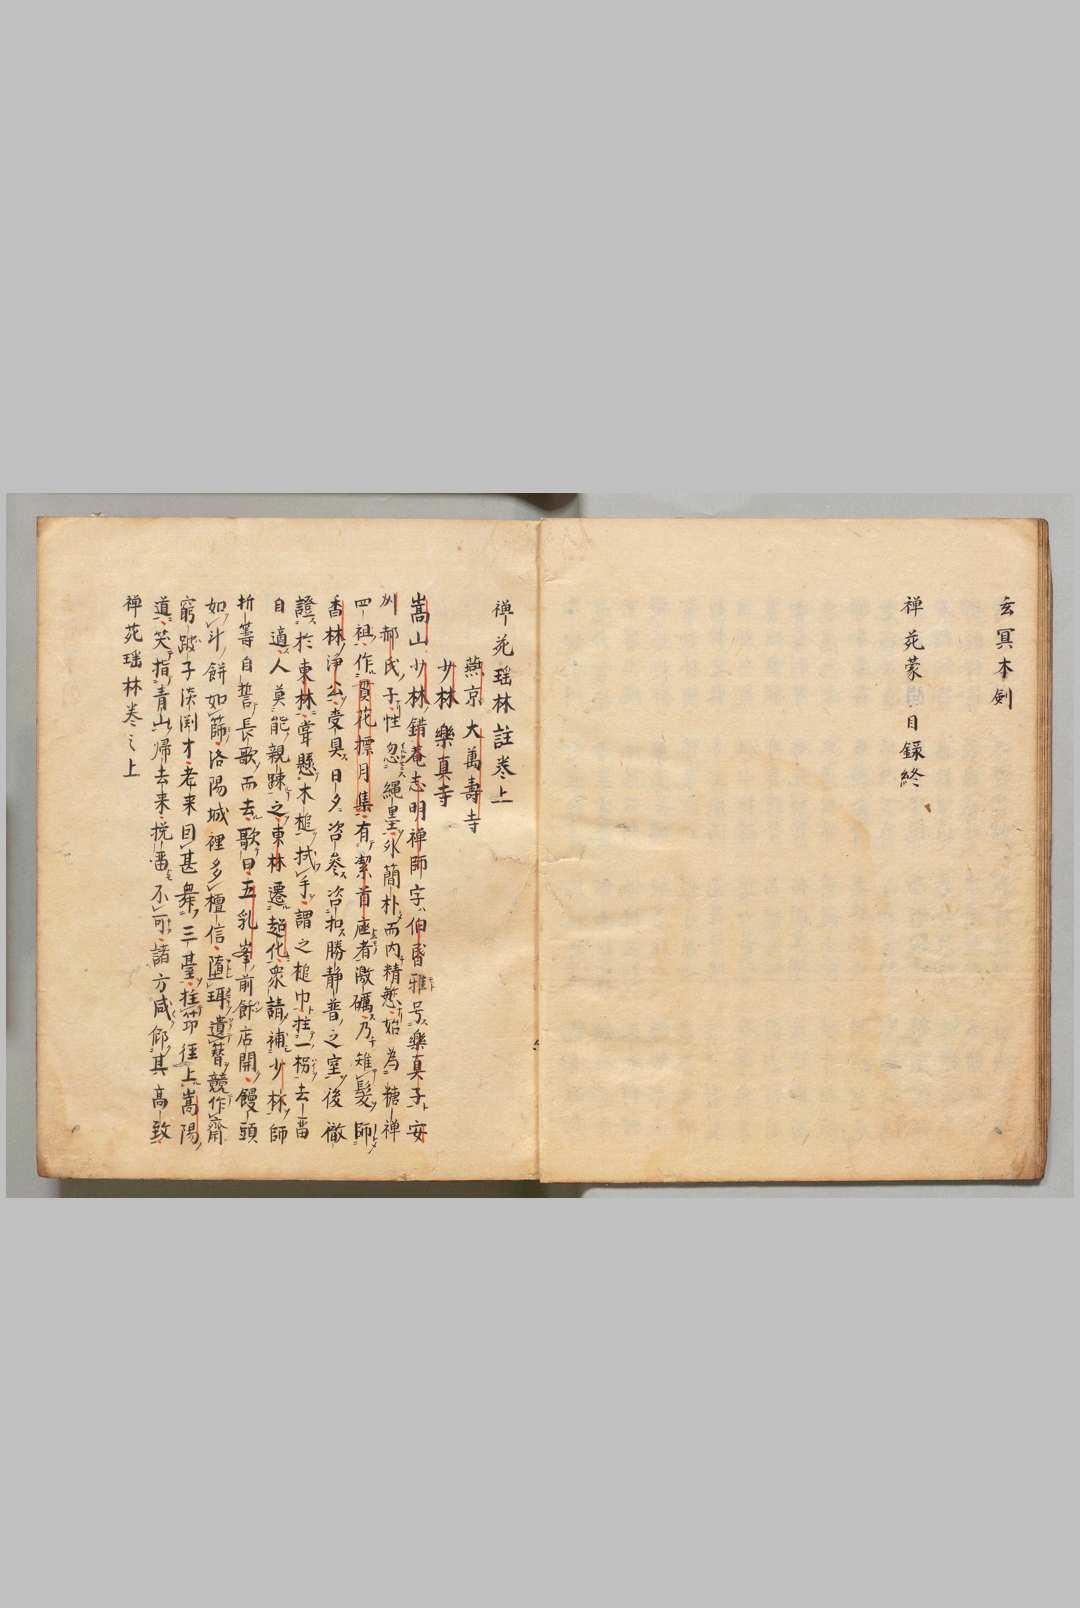 玄冥本剣
禅苑蒙目録終
禅苑瑶林註巻上
燕京大萬壽寺
少林樂真寺
嵩山少林錯菴志明禅師字伯昏雅号樂真子安
州郝氏子性忽繩墨外簡朴而内精慜始為糖禅
四祖作賈花摽月集有潔首座者激礪乃雉髮師
香林浄公受具日夕咨參咨扣勝静普之室後徹
證於東林甞懸木槌拭手謂之槌巾拄一柺去畄
自適人莫能親踈之東林遷超化衆請補少林師
折籌自誓長歌而去歌曰五乳峯前餅店開饅頭
如斗餅如篩洛陽城裡多檀信堕珥遺簪競作齋
窮跛子淡渕才老来目甚舞三臺拄笻徑上嵩陽
道笑指青山帰去来挽畄不可諸方咸仰其高致
禅苑瑶林巻之上